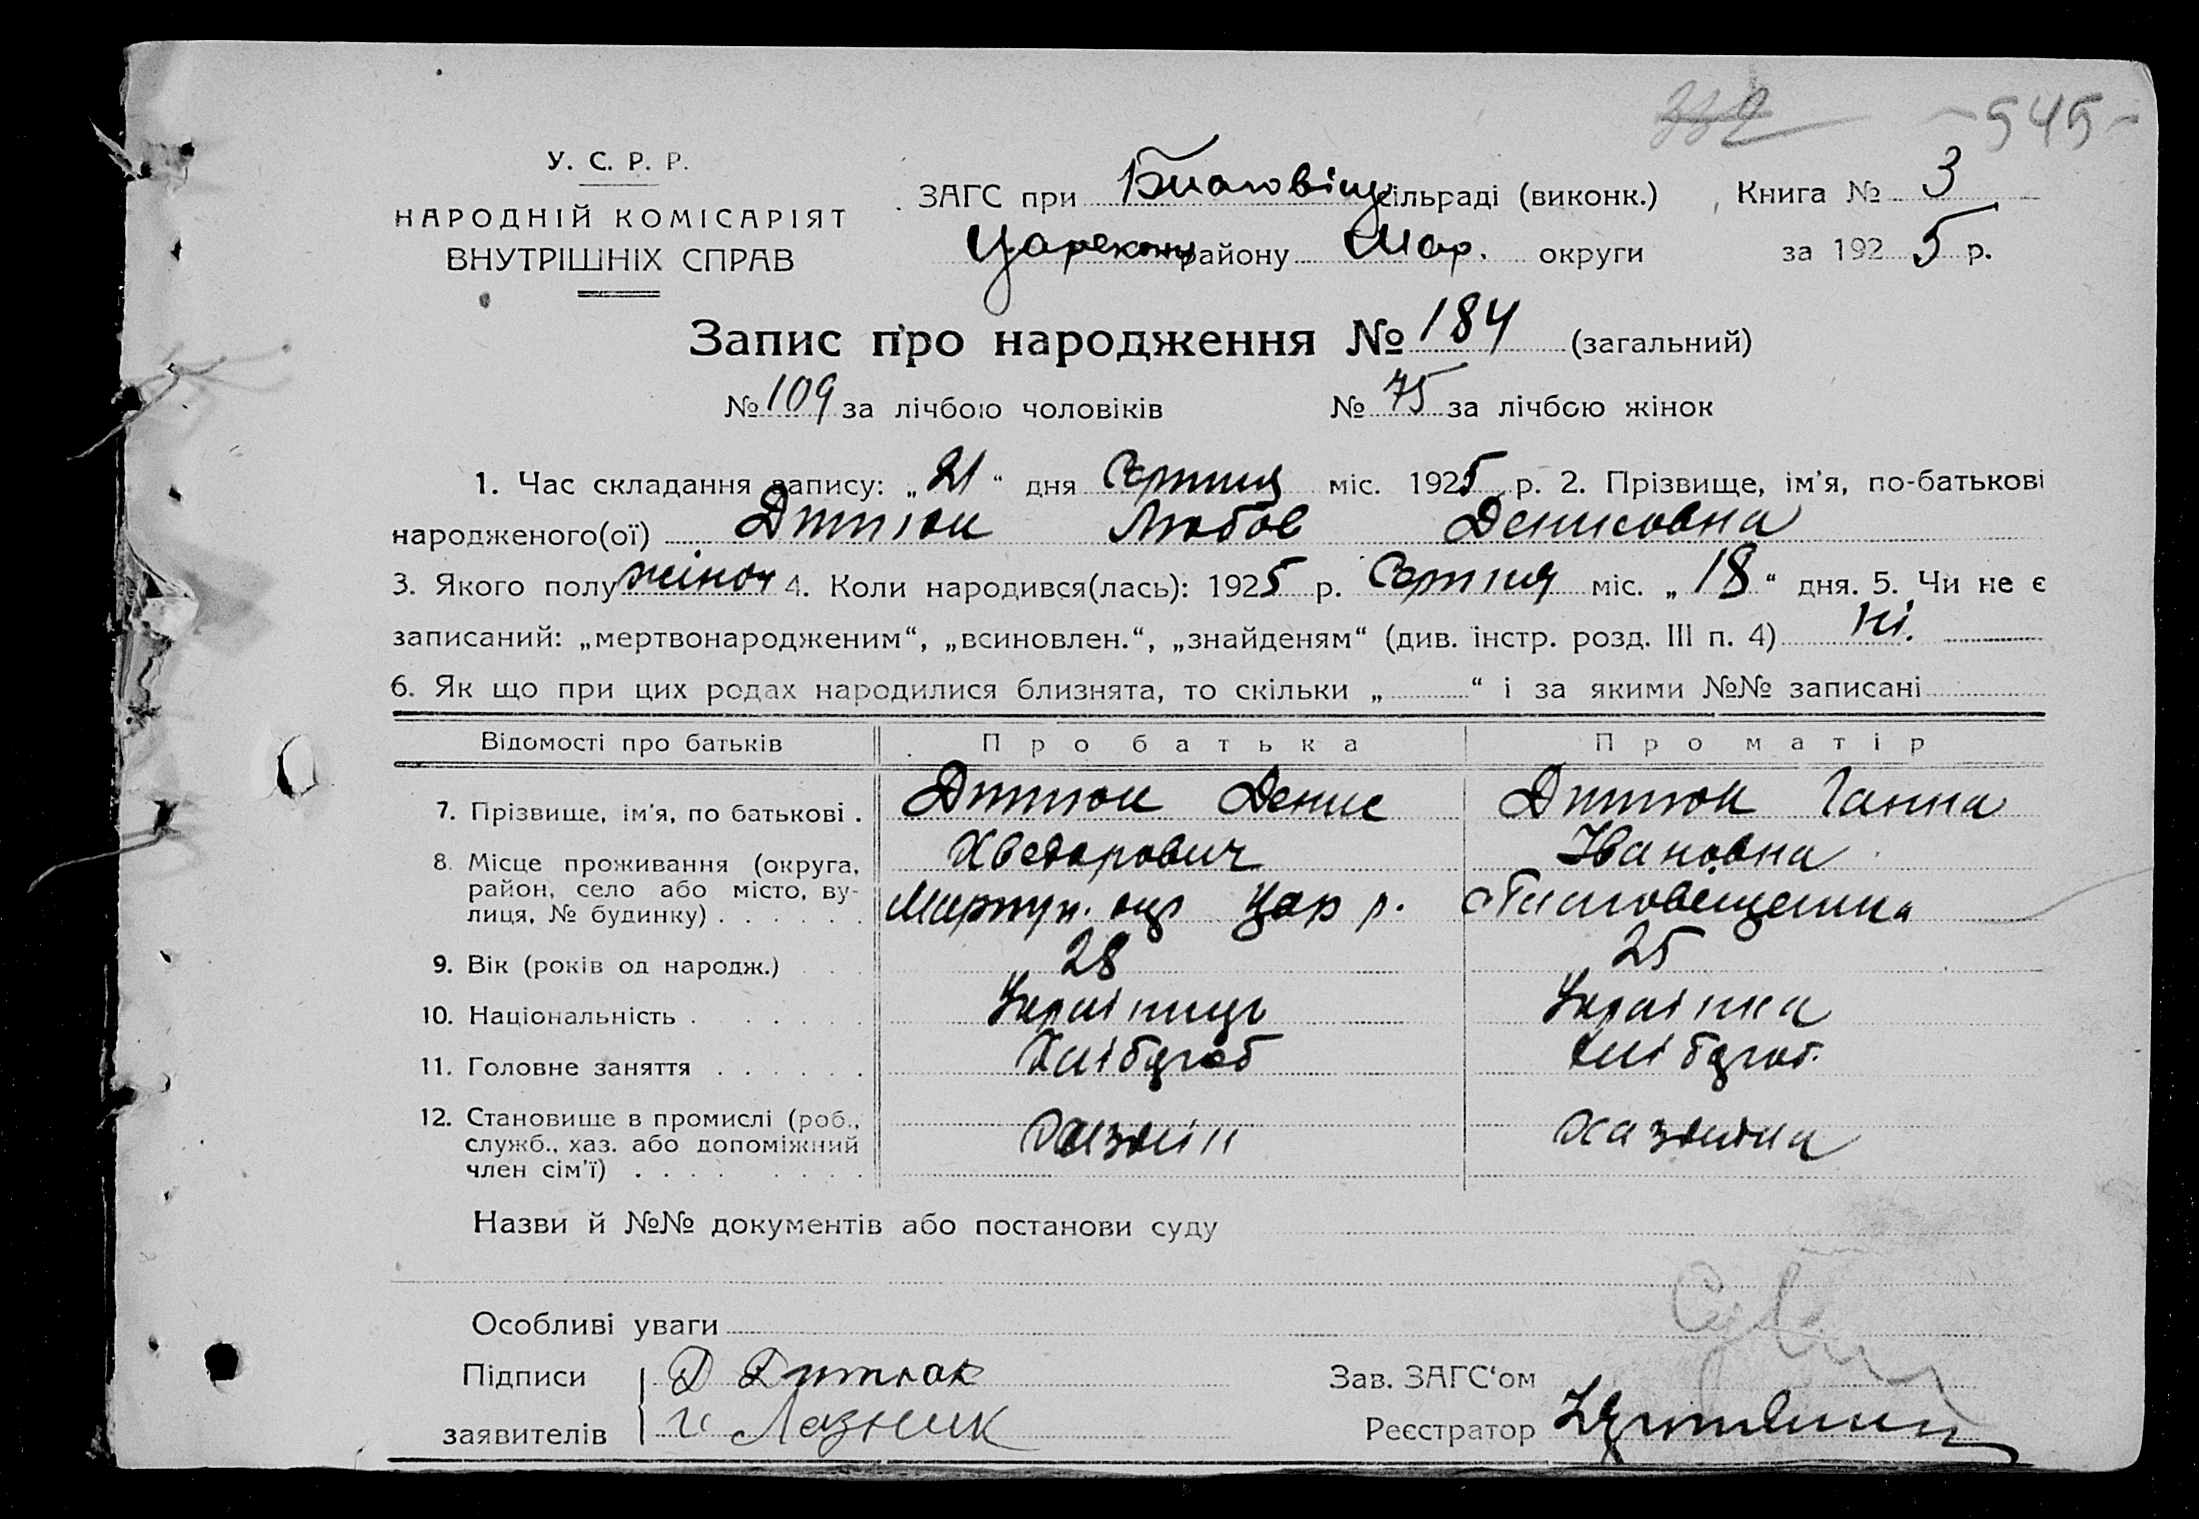 332 - 545 -
У. С. Р. Р.
НАРОДНІЙ КОМІСАРІЯТ
ВНУТРІШНІХ СПРАВ
ЗАГС при Благовіщ сільраді (виконк.) Книга № 3
Царекон району Мар. округи за 1925 р.
Запис про народження № 184 (загальний)
№ 109 за лічбою чоловіків № 75 за лічбою жінок
1. Час складання запису: „21“ дня Серпня міс. 1925 р. 2. Прізвище, ім'я, по-батькові
народженого(ої) Дитюк Любов Денисовна
3. Якого полу жіноч 4. Коли народився(лась): 1925 р. Серпня міс. „18“ дня. 5. Чи не є
записаний: „мертвонародженим“, „всиновлен.“, „знайденям“ (див. інстр. розд. III п. 4) Ні.
6. Як що при цих родах народилися близнята, то скільки „ “ і за якими №№ записані
Відомості про батьків Про батька Про матір
7. Прізвище, ім'я, по батькові . Дитюк Денис Дитюк Ганна
Хведорович Івановна
8. Місце проживання (округа,
район, село або місто, ву-
лиця, № будинку) . . . . . . Маріуп. окр Цар р. с Благовещенка
9. Вік (років од народж.) . . 28 25
10. Національність . . . . . . Українць Українка
11. Головне заняття . . . . . . Хлібороб Хлібороб.
12. Становище в промислі (роб.,
служб., хаз. або допоміжний
член сім'ї) . . . . . . . . Хазяін Хазяйка
Назви й №№ документів або постанови суду
Особливі уваги
Підписи Д Дитюк Зав. ЗАГС‘ом
заявителів Г. Лазник Реєстратор